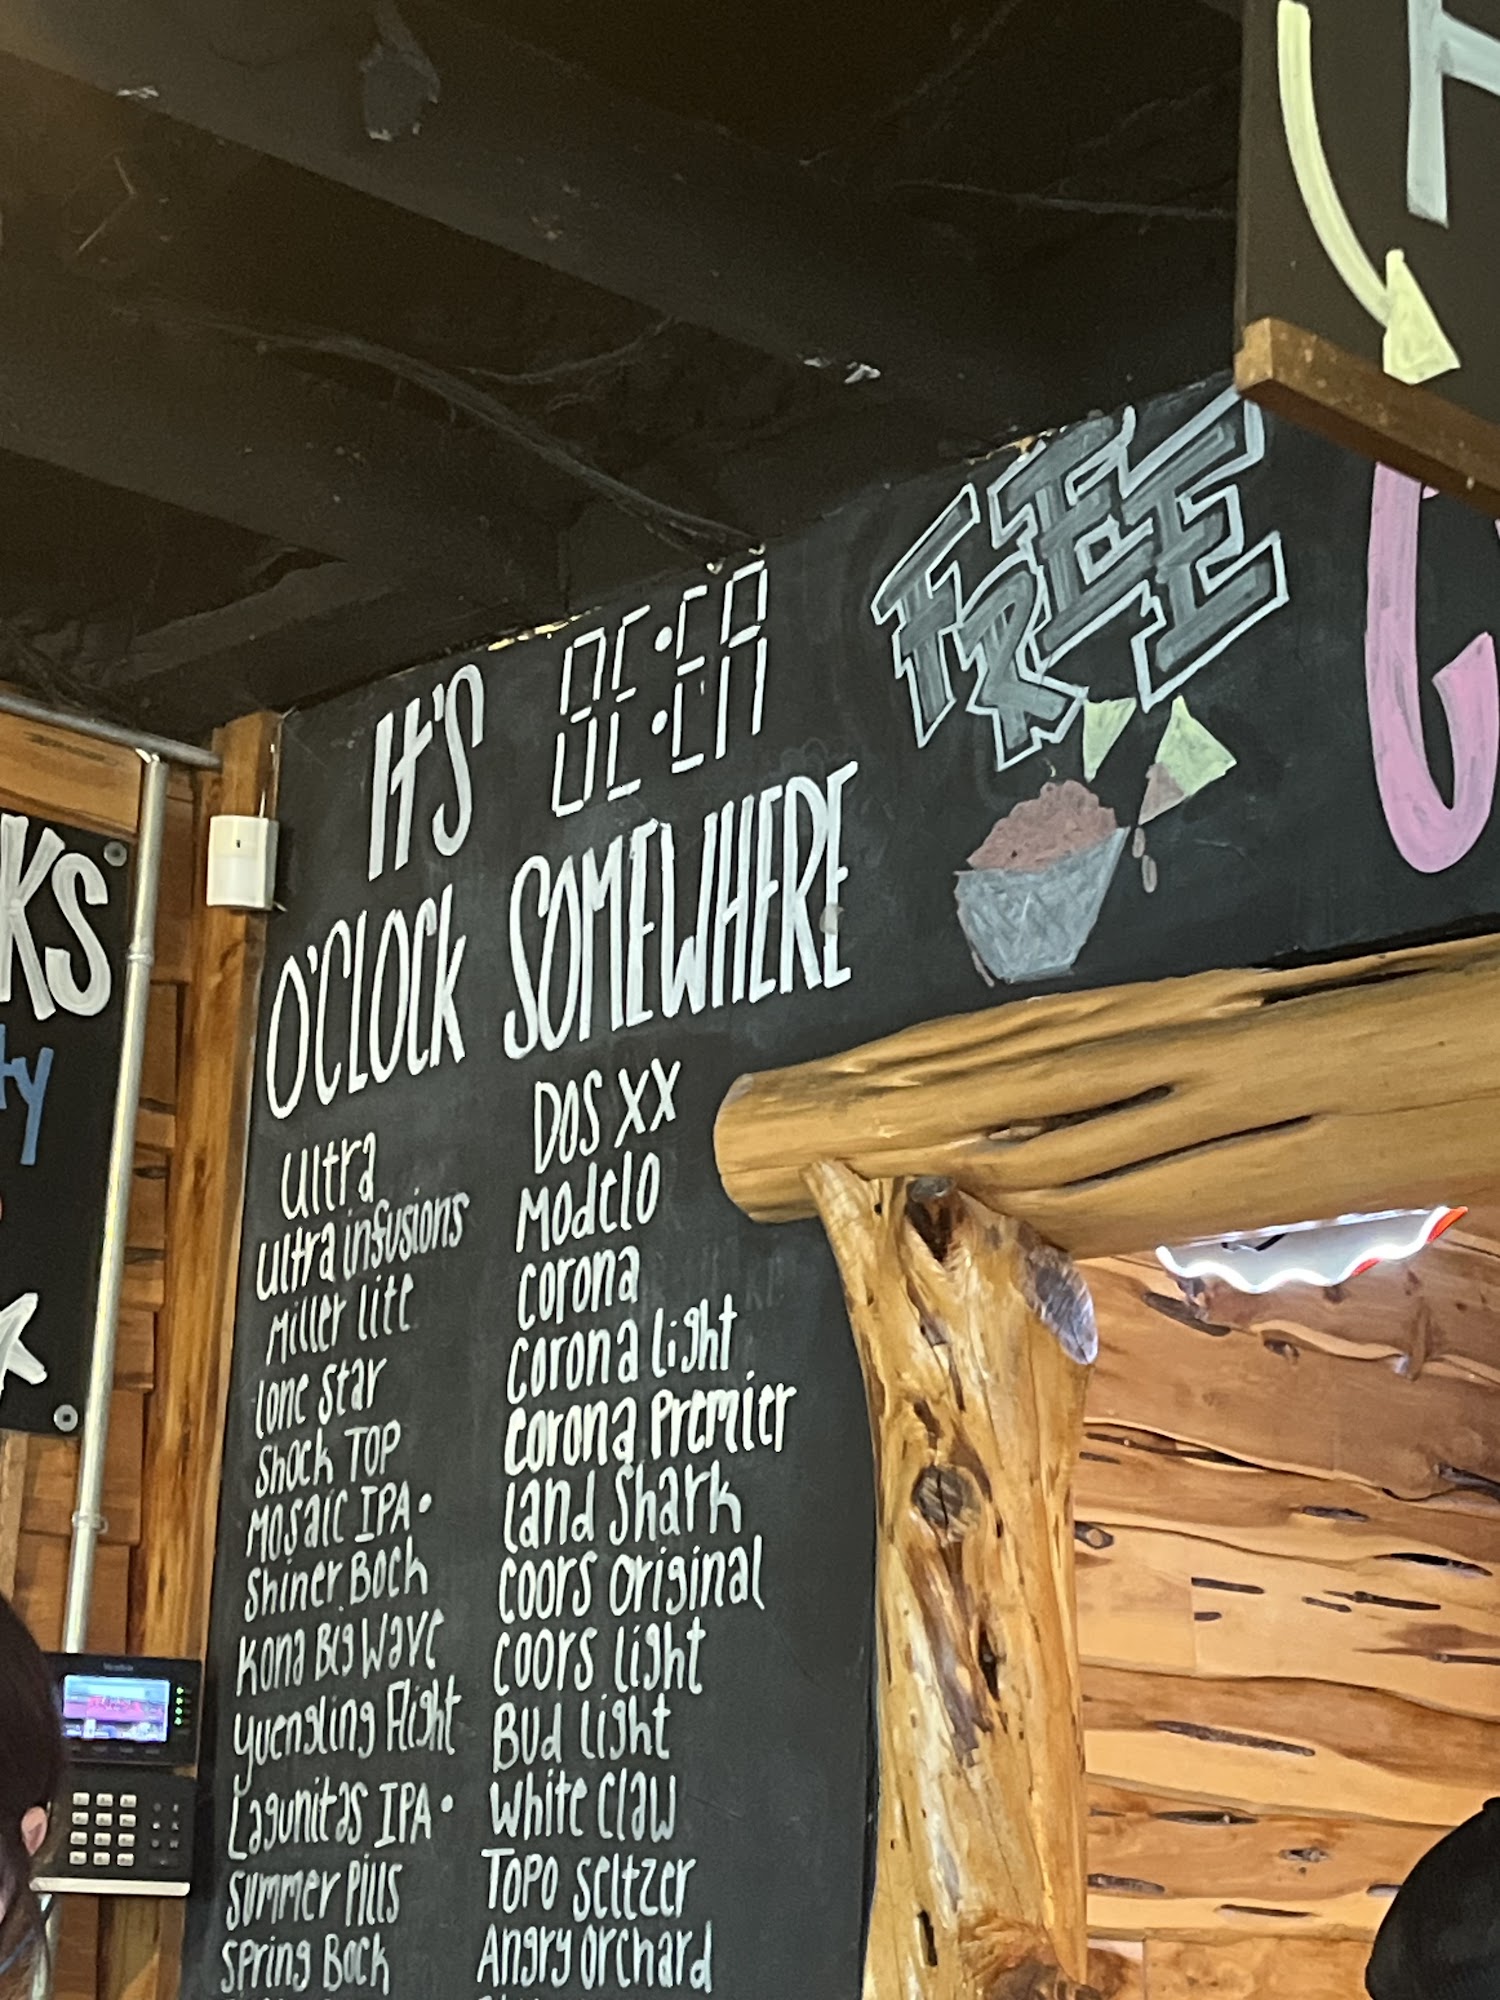 IT'S BE:ER
O'CLOCK SOMEWHERE
Ultra
Ultra infusions
Miller lite
lone star
Shock TOP
Mosaic IPA•
Shiner Bock
Kona Big Wave
Yuengling Flight
Lagunitas IPA•
Summer Pills
Spring Bock
DOS XX
Modelo
Corona
Corona light
Corona Premier
Land Shark
Coors Original
Coors light
Bud light
White Claw
TOPO Seltzer
Angry Orchard
FREE
KS
ty